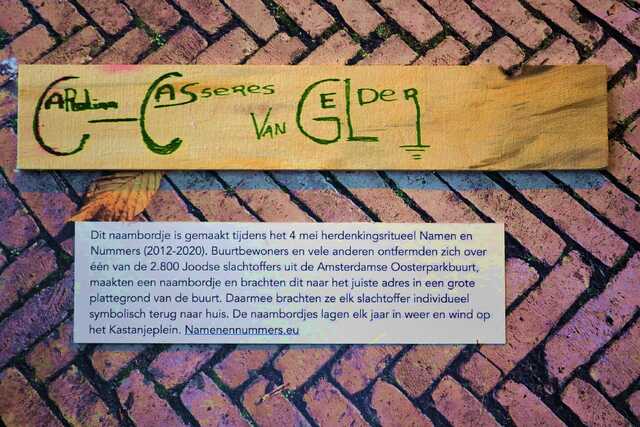 CARoline - CASseres
VAN GELDER
Dit naambordje is gemaakt tijdens het 4 mei herdenkingsritueel Namen en
Nummers (2012-2020). Buurtbewoners en vele anderen ontfermden zich over
één van de 2.800 Joodse slachtoffers uit de Amsterdamse Oosterparkbuurt,
maakten een naambordje en brachten dit naar het juiste adres in een grote
plattegrond van de buurt. Daarmee brachten ze elk slachtoffer individueel
symbolisch terug naar huis. De naambordjes lagen elk jaar in weer en wind op
het Kastanjeplein. Namenennummers.eu